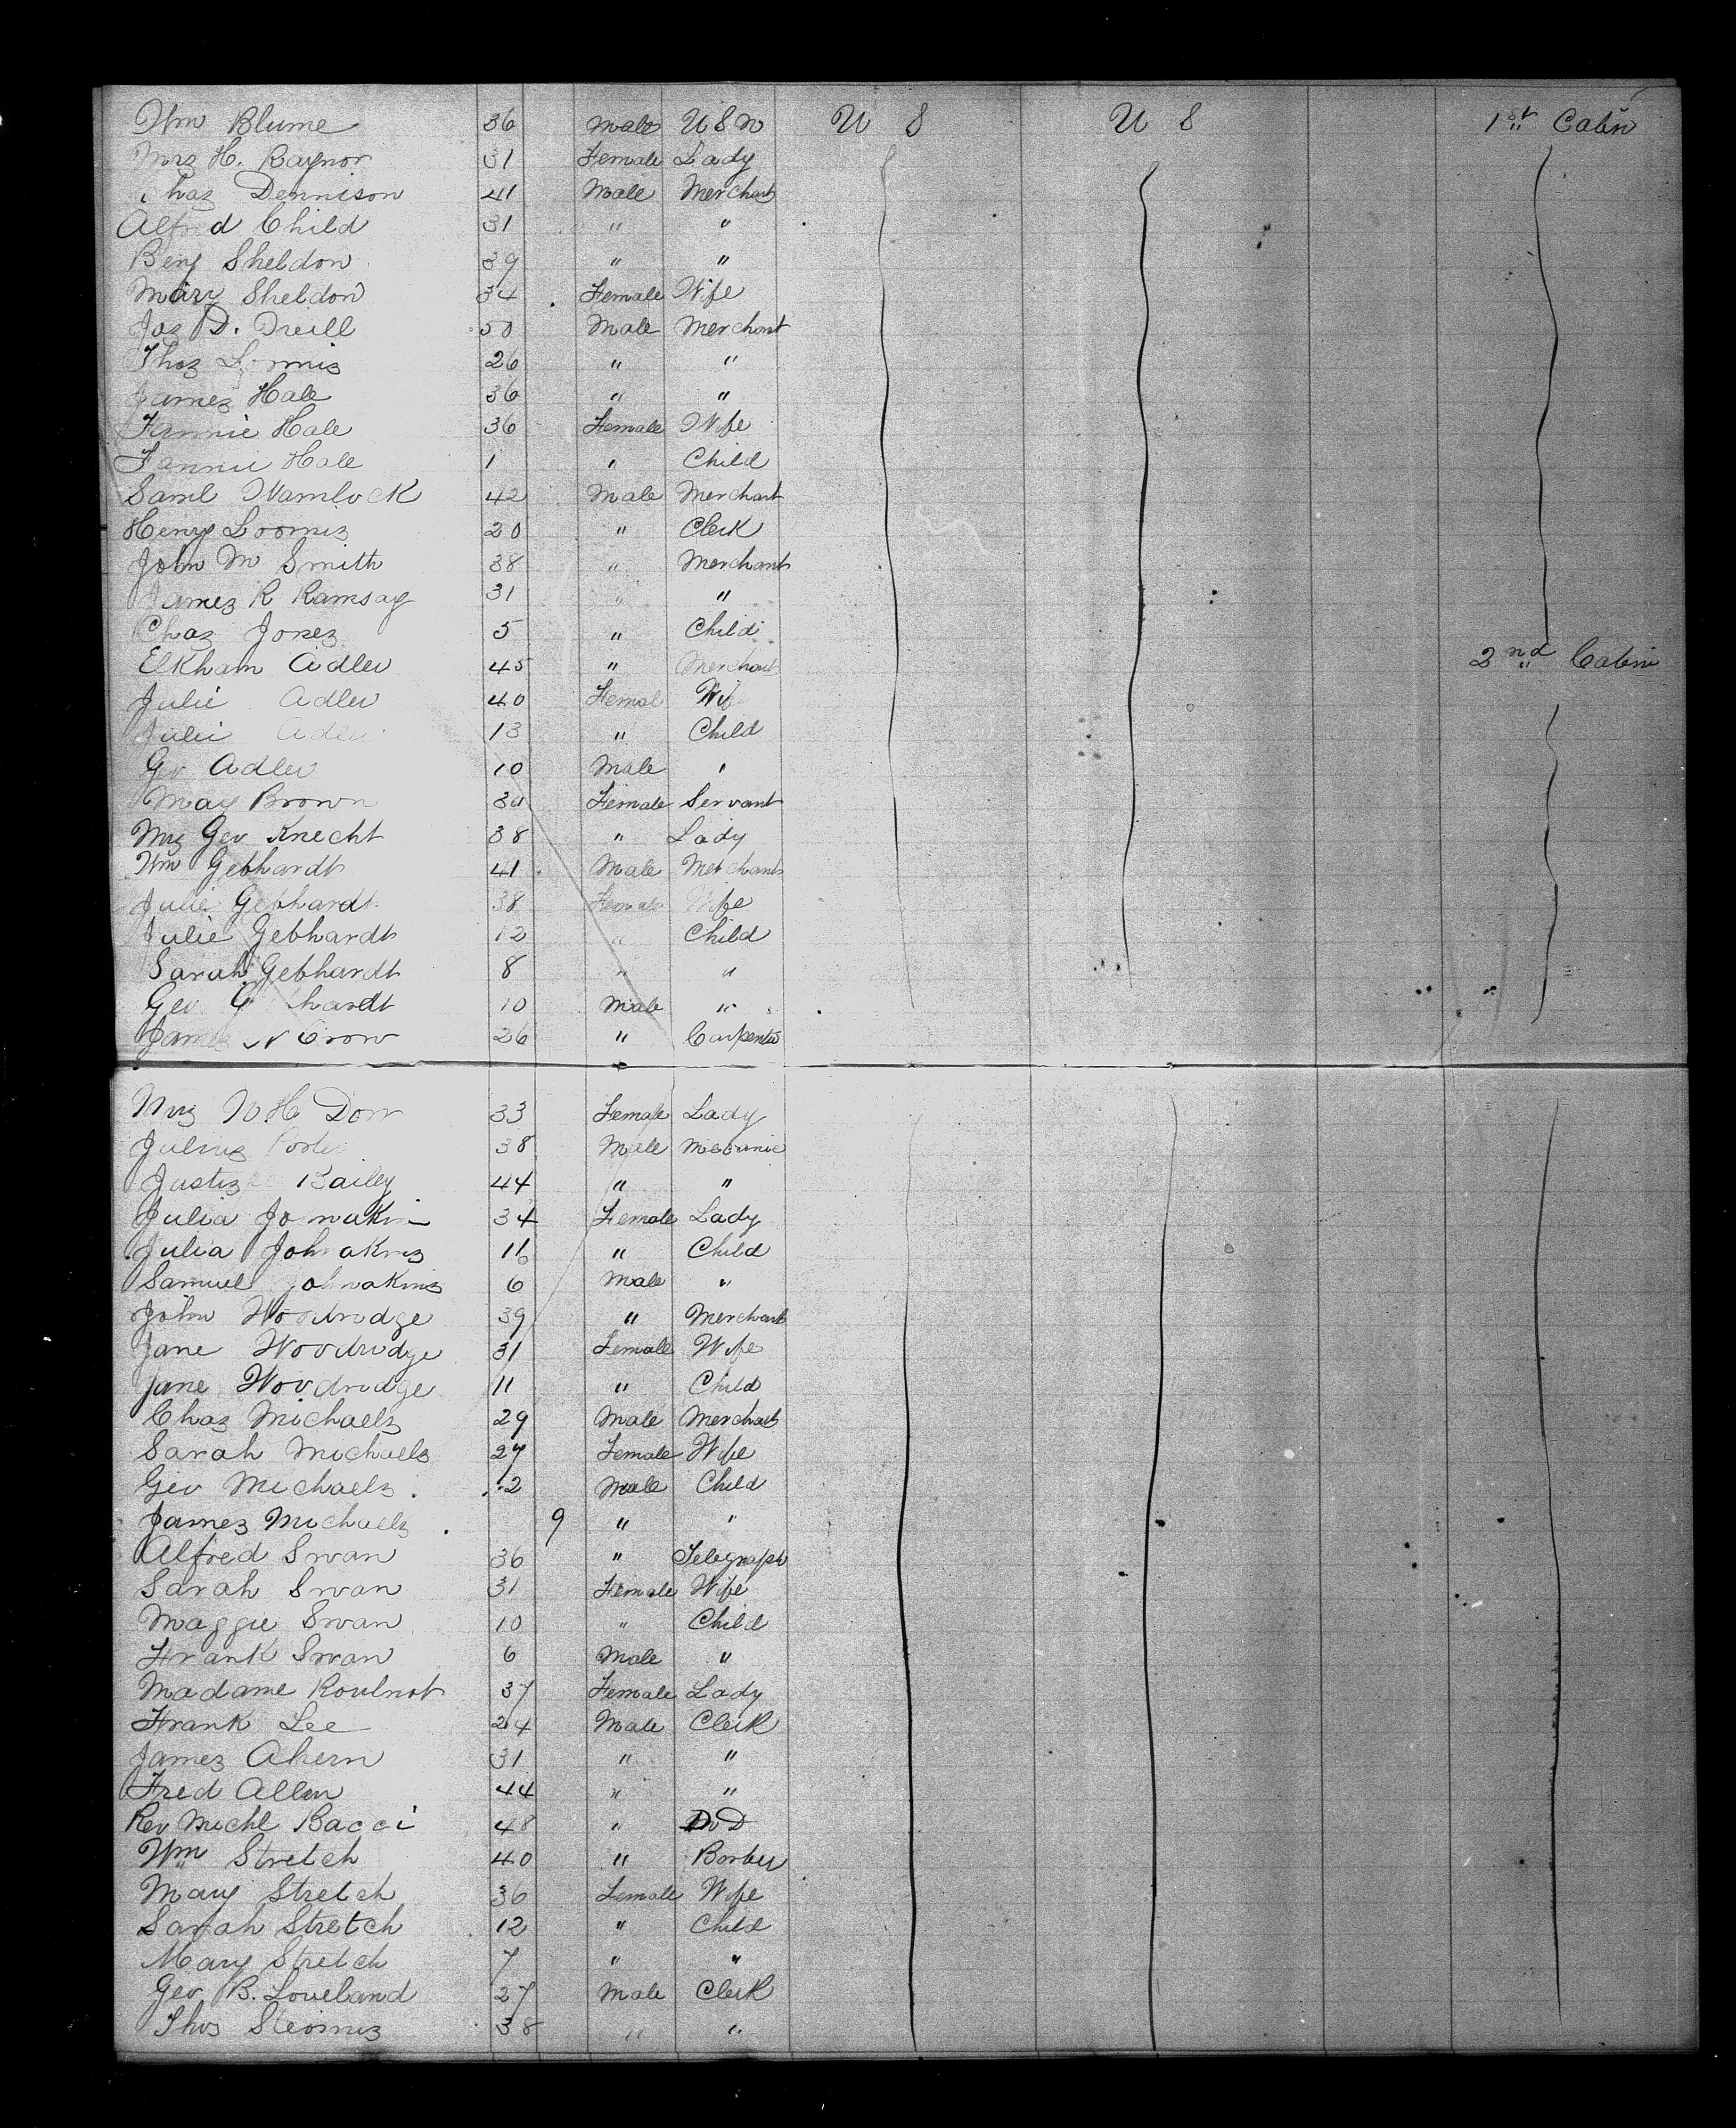 Wm Blume 36 Male U S N U S U S 1st Cabin
Mrs H. Raynor 31 Female Lady
Chas Dennison 41 Male Merchant
Alfred Child 31 " "
Benj Sheldon 39 " "
Mary Sheldon 34 Female Wife
Jas D. 50 Male Merchant
Thos 26 " "
James Hale 36 " "
Fannie Hale 36 Female Wife
Fannie Hale 1 " Child
Saml Wamlock 42 Male Merchant
Henry Loomis 20 " Clerk
John M Smith 38 " Merchant
James R Ramsay 31 " "
Chas Jones 5 " Child
Elkham Adler 45 " Merchant 2nd Cabin
Julie Adler 40 Female Wife
Julie Adler 13 " Child
Geo Adler 10 Male "
May Brown 30 Female Servant
Mrs Geo Knecht 38 " Lady
Wm Gebhardt 41 Male Merchant
Julie Gebhardt 38 Female Wife
Julie Gebhardt 12 " Child
Sarah Gebhardt 8 " "
Geo Gebhardt 10 Male "
James N Crow 26 " Carpenter
Mrs W. H Dorr 33 Female Lady
Julius 38 Male Mecanic
Bailey 44 " "
Julia 34 Female Lady
Julia 11 " Child
Samuel 6 Male "
John Woodridge 39 " Merchant
Jane Woodridge 31 Female Wife
Jane Woodridge 11 " Child
Chas Michaels 29 Male Merchant
Sarah Michaels 27 Female Wife
Geo Michaels 2 Male Child
James Michaels 9 " "
Alfred Swan 36 " Telegraph
Sarah Swan 31 Female Wife
Maggie Swan 10 " Child
Frank Swan 6 Male "
Madame Roulnot 37 Female Lady
Frank Lee 24 Male Clerk
James Ahern 31 " "
Fred Allen 44 " "
Rev Michl Bacci 48 " D D
Wm Stretch 40 " Barber
Mary Stretch 36 Female Wife
Sarah Stretch 12 " Child
Mary Stretch 7 " "
Geo B. Loveland 27 Male Clerk
Thos 38 " "